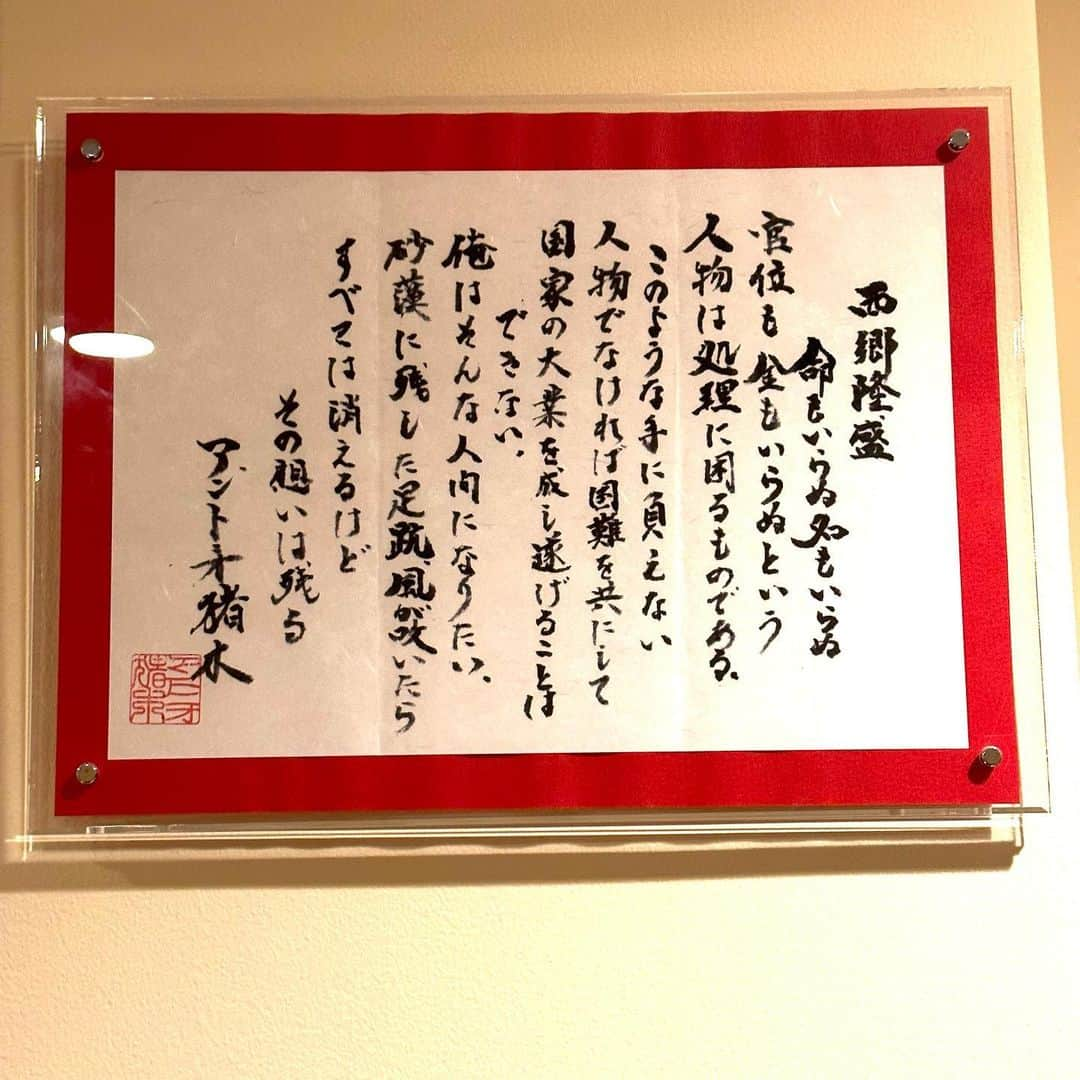 西郷隆盛
命もいらぬ名もいらぬ
官位も金もいらぬという
人物は処理に困るものである、
このような手に負えない
人物でなければ困難を共にして
国家の大業を成し遂げることは
できない、
俺はそんな人間になりたい、
砂漠に残した足跡、風が吹いたら
すべては消えるけど
その想いは残る
アントニオ猪木